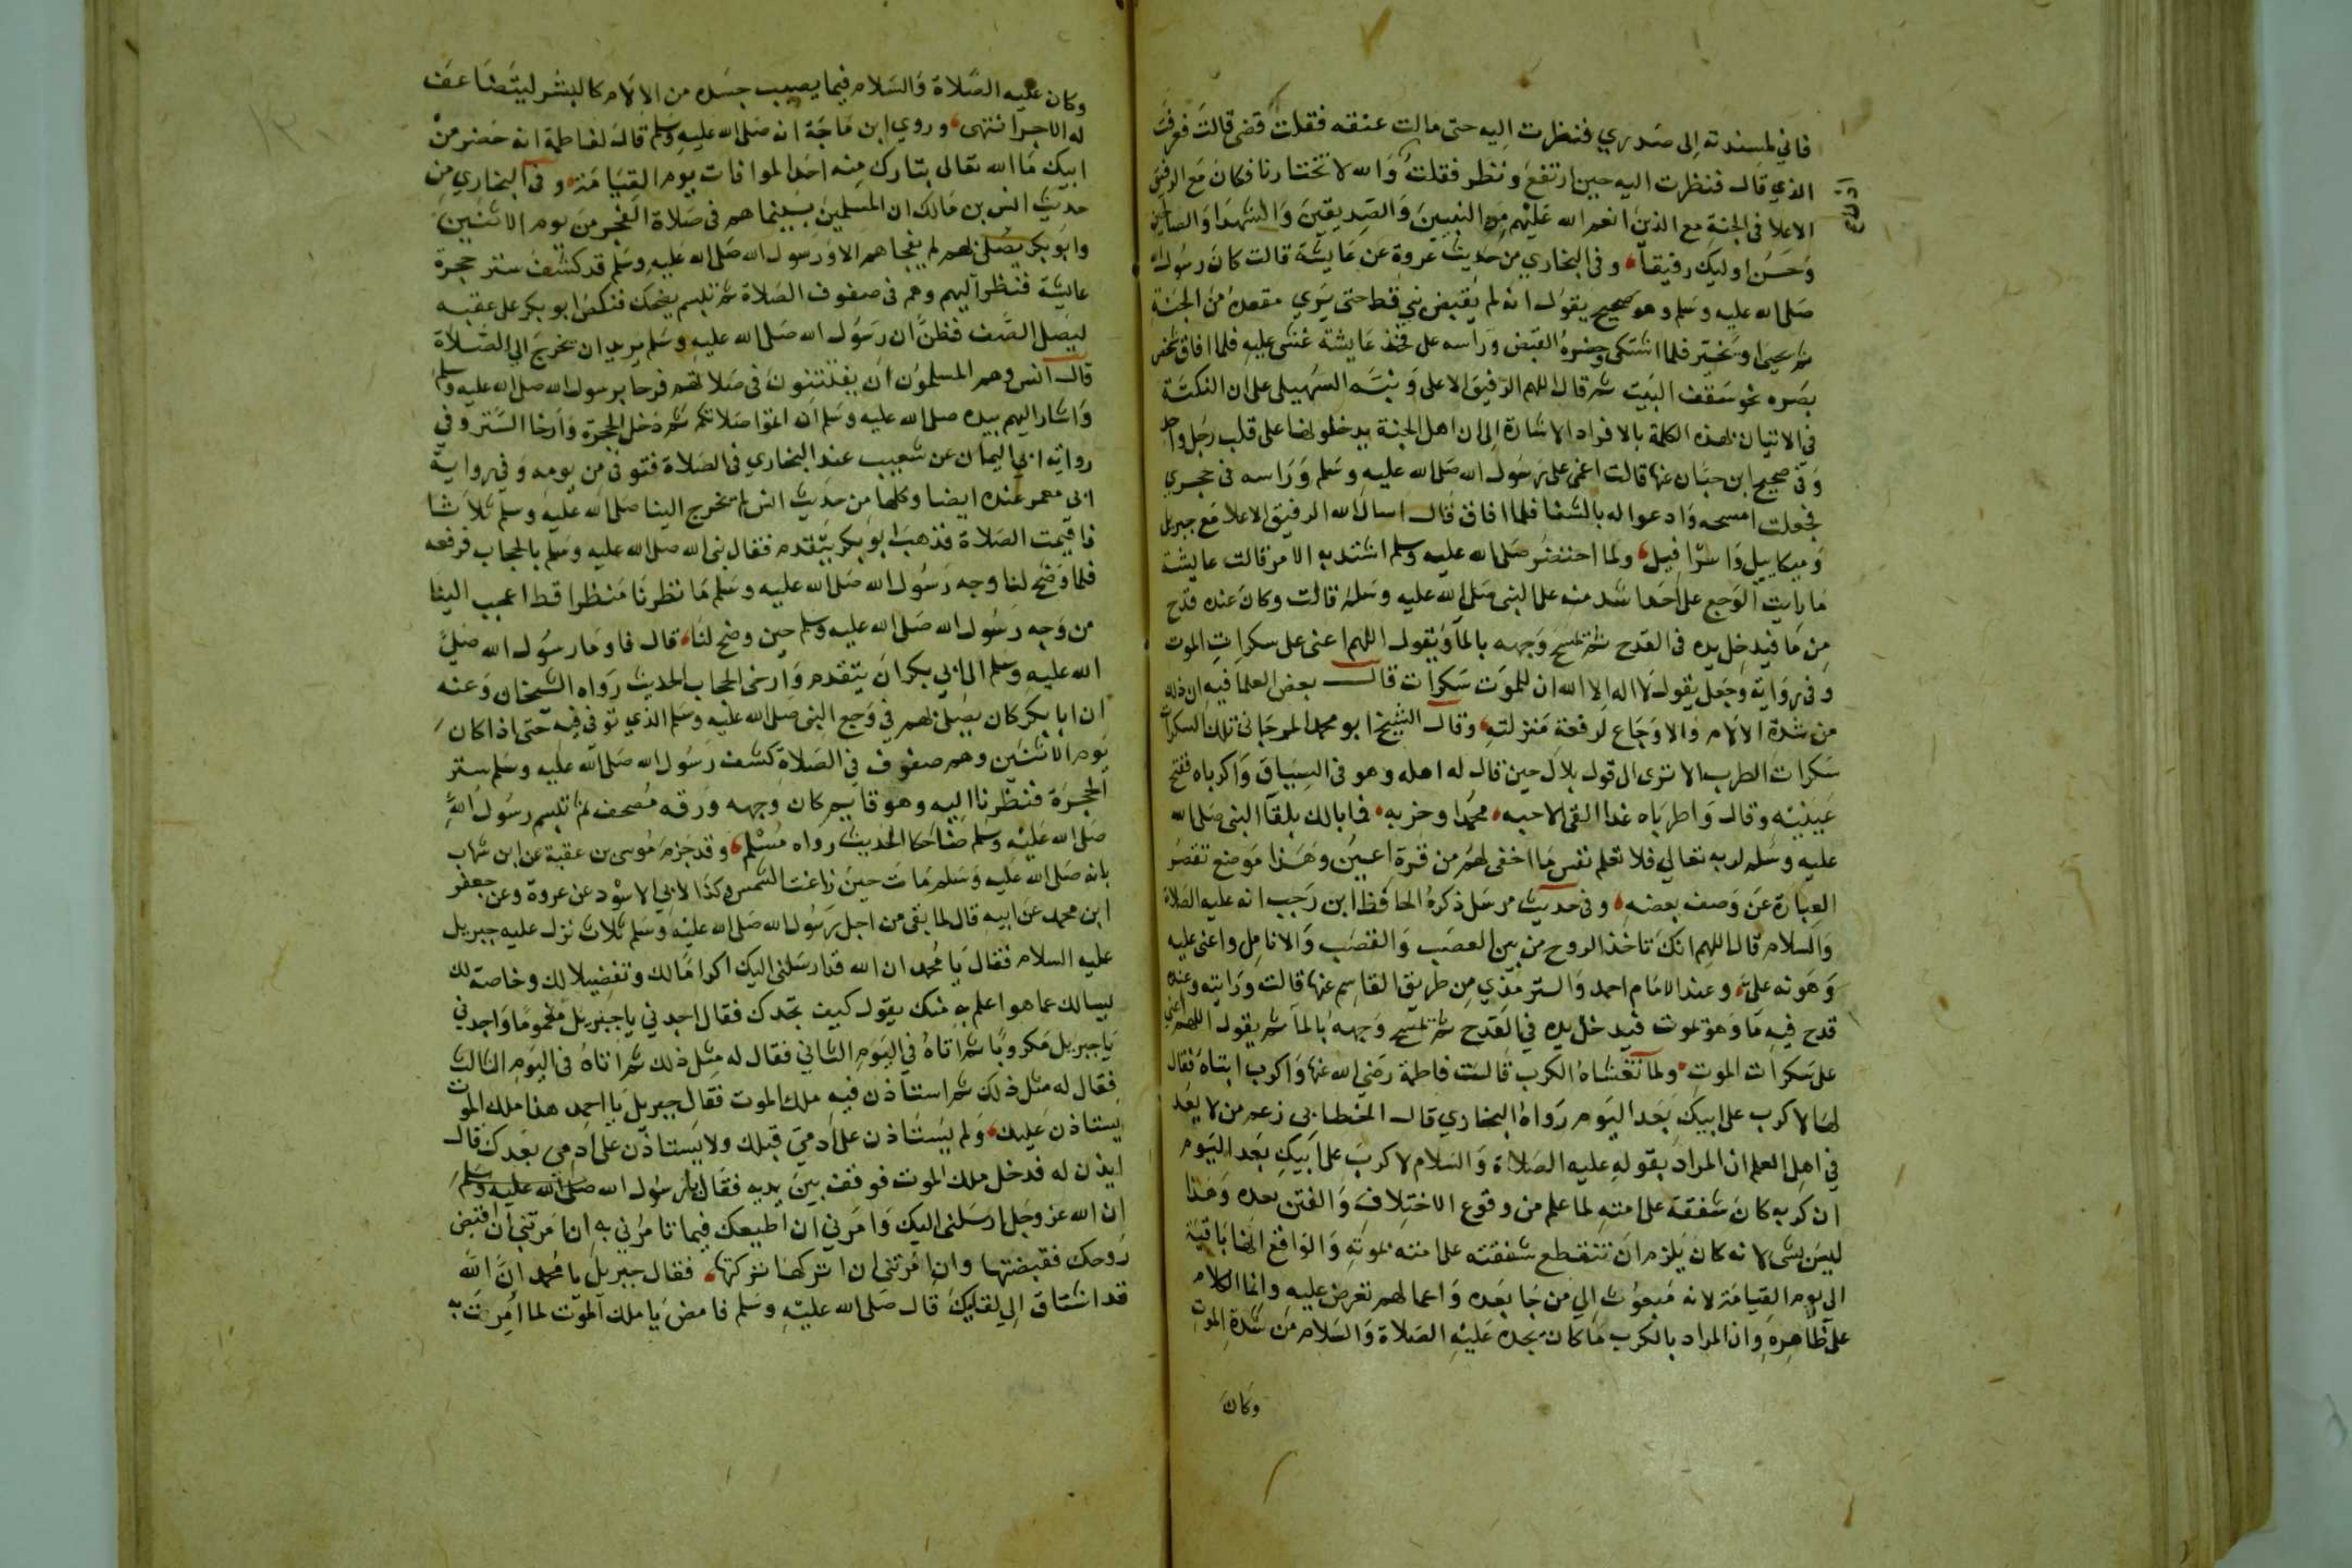 فاني لمسندته إلى صدري فنظرت اليه حتى مالت عنقه فقلت قضى قالت فعرفت
الذي قال فنظرت اليه حين ارتفع ونظر فقلت والله لا تختارنا فكان مع الرفيق
الاعلا في الجنة مع الذين انعم الله عليهم من النبيين والصديقين والشهدا والصالحين
وحسن اوليك رفيقا وفي البخاري من حديث عروة عن عايشة قالت كان رسول الله
صلى الله عليه وسلم وهو صحيح يقول انه لم يقبض نبي قط حتى يرى مقعده من الجنة
ثم يحيا او يخير فلما اشتكى وحضره القبض وراسه على فخذ عايشة غشي عليه فلما افاق شخص
بصره نحو سقف البيت ثم قال اللهم الرفيق الاعلى ونبه السهيلي على ان النكتة
في الاتيان بهذه الكلمة بالافراد الاشارة الى ان اهل الجنة يدخلونها على قلب رجل واحد
وفي صحيح ابن حبان عنها قالت اغمى على رسول الله صلى الله عليه وسلم وراسه في حجري
فجعلت امسحه وادعوا له بالشفا فلما افاق قال اسال الله الرفيق الاعلا مع جبريل
وميكاييل واسرافيل ولما احتضر صلى الله عليه وسلم اشتد به الامر قالت عايشة
ما رايت الوجع على احد اشد منه على النبي صلى الله عليه وسلم قالت وكان عنده قدح
من ما فيدخل يده في القدح ثم يمسح وجهه بالما ويقول اللهم اعني على سكرات الموت
وفي رواية وجعل يقول لا اله الا الله ان للموت سكرات قال بعض العلما فيه ان ذلك
من شدة الالام والاوجاع لرفعة منزلته وقال الشيخ ابو محمد المرجاني تلك السكرات
سكرات الطرب الا ترى الى قول بلال حين قال له اهله وهو في السياق واكرباه ففتح
عينيه وقال واطرباه غدا القى الاحبه محمدا وحزبه فما بالك بلقا النبي صلى الله
عليه وسلم لربه تعالي فلا تعلم نفس ما اخفى لهم من قرة اعين وهذا موضع تقصر
العبارة عن وصف بعضه وفي حديث مرسل ذكره الحافظ ابن رجب انه عليه الصلاة
والسلام قال اللهم انك تاخذ الروح من بين العصب والقصب والانامل واعني عليه
وهونه علي وعند الامام احمد والترمذي من طريق القاسم عنها قالت ورايته وعنده
قدح فيه ما وهو يموت فيدخل يده في القدح ثم يمسح وجهه بالما ثم يقول اللهم اعني
على سكرات الموت ولما تغشاه الكرب قالت فاطمة رضي الله عنها واكرب ابتاه فقال
لها لا كرب على ابيك بعد اليوم رواه البخاري قال الخطابي زعم من لا يعد
في اهل العلم ان المراد بقوله عليه الصلاة والسلام لا كرب على ابيك بعد اليوم
ان كربه كان شفقة على امته لما علم من وقوع الاختلاف والفتن بعده وهذا
ليس بشى لانه كان يلزم ان تنقطع شفقته على امته بموته والواقع انها باقية
الى يوم القيامة لانه مبعوث الى من جا بعده واعمالهم تعرض عليه وانما الكلام
على ظاهره وان المراد بالكرب ما كان يجده عليه الصلاة والسلام من شدة الموت
وكان
وكان عليه الصلاة والسلام فيما يصيب جسده من الالام كالبشر ليتضاعف
له الاجر انتهى وروي ابن ماجة انه صلى الله عليه وسلم قال لفاطمة انه حضر من
ابيك ما الله تعالى بتارك منه احدا لموافات يوم القيامة وفي البخاري من
حديث انس بن مالك ان المسلمين بينما هم في صلاة الفجر من يوم الاثنين
وابو بكر يصلي لهم لم يفجاهم الا ورسول الله صلى الله عليه وسلم قد كشف ستر حجرة
عايشة فنظر اليهم وهم في صفوف الصلاة ثم تبسم يضحك فنكص ابو بكر على عقبيه
ليصل الصف فظن ان رسول الله صلى الله عليه وسلم يريد ان يخرج الي الصلاة
قال انس وهم المسلمون ان يفتتنون في صلاتهم فرحا برسول الله صلى الله عليه وسلم
واشار اليهم بيده صلى الله عليه وسلم ان اتموا صلاتكم ثم دخل الحجرة وارخا الستر وفي
رواية ابي اليمان عن شعيب عند البخاري في الصلاة فتوفى من يومه وفي رواية
ابي معمر عنده ايضا وكلها من حديث انس لم يخرج الينا صلى الله عليه وسلم ثلاثا
فاقيمت الصلاة فذهب ابو بكر يتقدم فقال نبي الله صلى الله عليه وسلم بالحجاب فرفعه
فلما وضح لنا وجه رسول الله صلى الله عليه وسلم ما نظرنا منظرا قط اعجب الينا
من وجه رسول الله صلى الله عليه وسلم حين وضح لنا قال فاوما رسول الله صلى
الله عليه وسلم الى ابي بكر ان يتقدم وارخى الحجاب الحديث رواه الشيخان وعنه
ان ابا بكر كان يصلي لهم في وجع النبي صلى الله عليه وسلم الذي توفى فيه حتى اذا كان
يوم الاثنين وهم صفوف في الصلاة كشف رسول الله صلى الله عليه وسلم ستر
الحجرة فنظرنا اليه وهو قايم كان وجهه ورقه مصحف ثم تبسم رسول الله
صلى الله عليه وسلم ضاحكا الحديث رواه مسلم وقد جزم موسى بن عقبة عن ابن شهاب
بانه صلى الله عليه وسلم مات حين زاغت الشمس وكذا لابي الاسود عن عروة وعن جعفر
ابن محمد عن ابيه قال لما بقى من اجل رسول الله صلى الله عليه وسلم ثلاث نزل عليه جبريل
عليه السلام فقال يا محمد ان الله قد ارسلني اليك اكراما لك وتفضيلا لك وخاصة لك
ليسالك عما هو اعلم به منك يقول كيف تجدك فقال اجدني يا جبريل مغموما واجدني
يا جبريل مكروبا ثم اتاه في اليوم الثاني فقال له مثل ذلك ثم اتاه في اليوم الثالث
فقال له مثل ذلك ثم استاذن فيه ملك الموت فقال جبريل يا احمد هذا ملك الموت
يستاذن عليك ولم يستاذن على ادمي قبلك ولا يستاذن على ادمي بعدك قال
ايذن له فدخل ملك الموت فوقف بين يديه فقال يا رسول الله صلى الله عليه وسلم
ان الله عز وجل ارسلني اليك وامرني ان اطيعك فيما تامرني به ان امرتني ان اقبض
روحك فقبضتها وان امرتني ان اتركها تركتها فقال جبريل يا محمد ان الله
قد اشتاق الي لقايك قال صلى الله عليه وسلم فامض يا ملك الموت لما امرت به